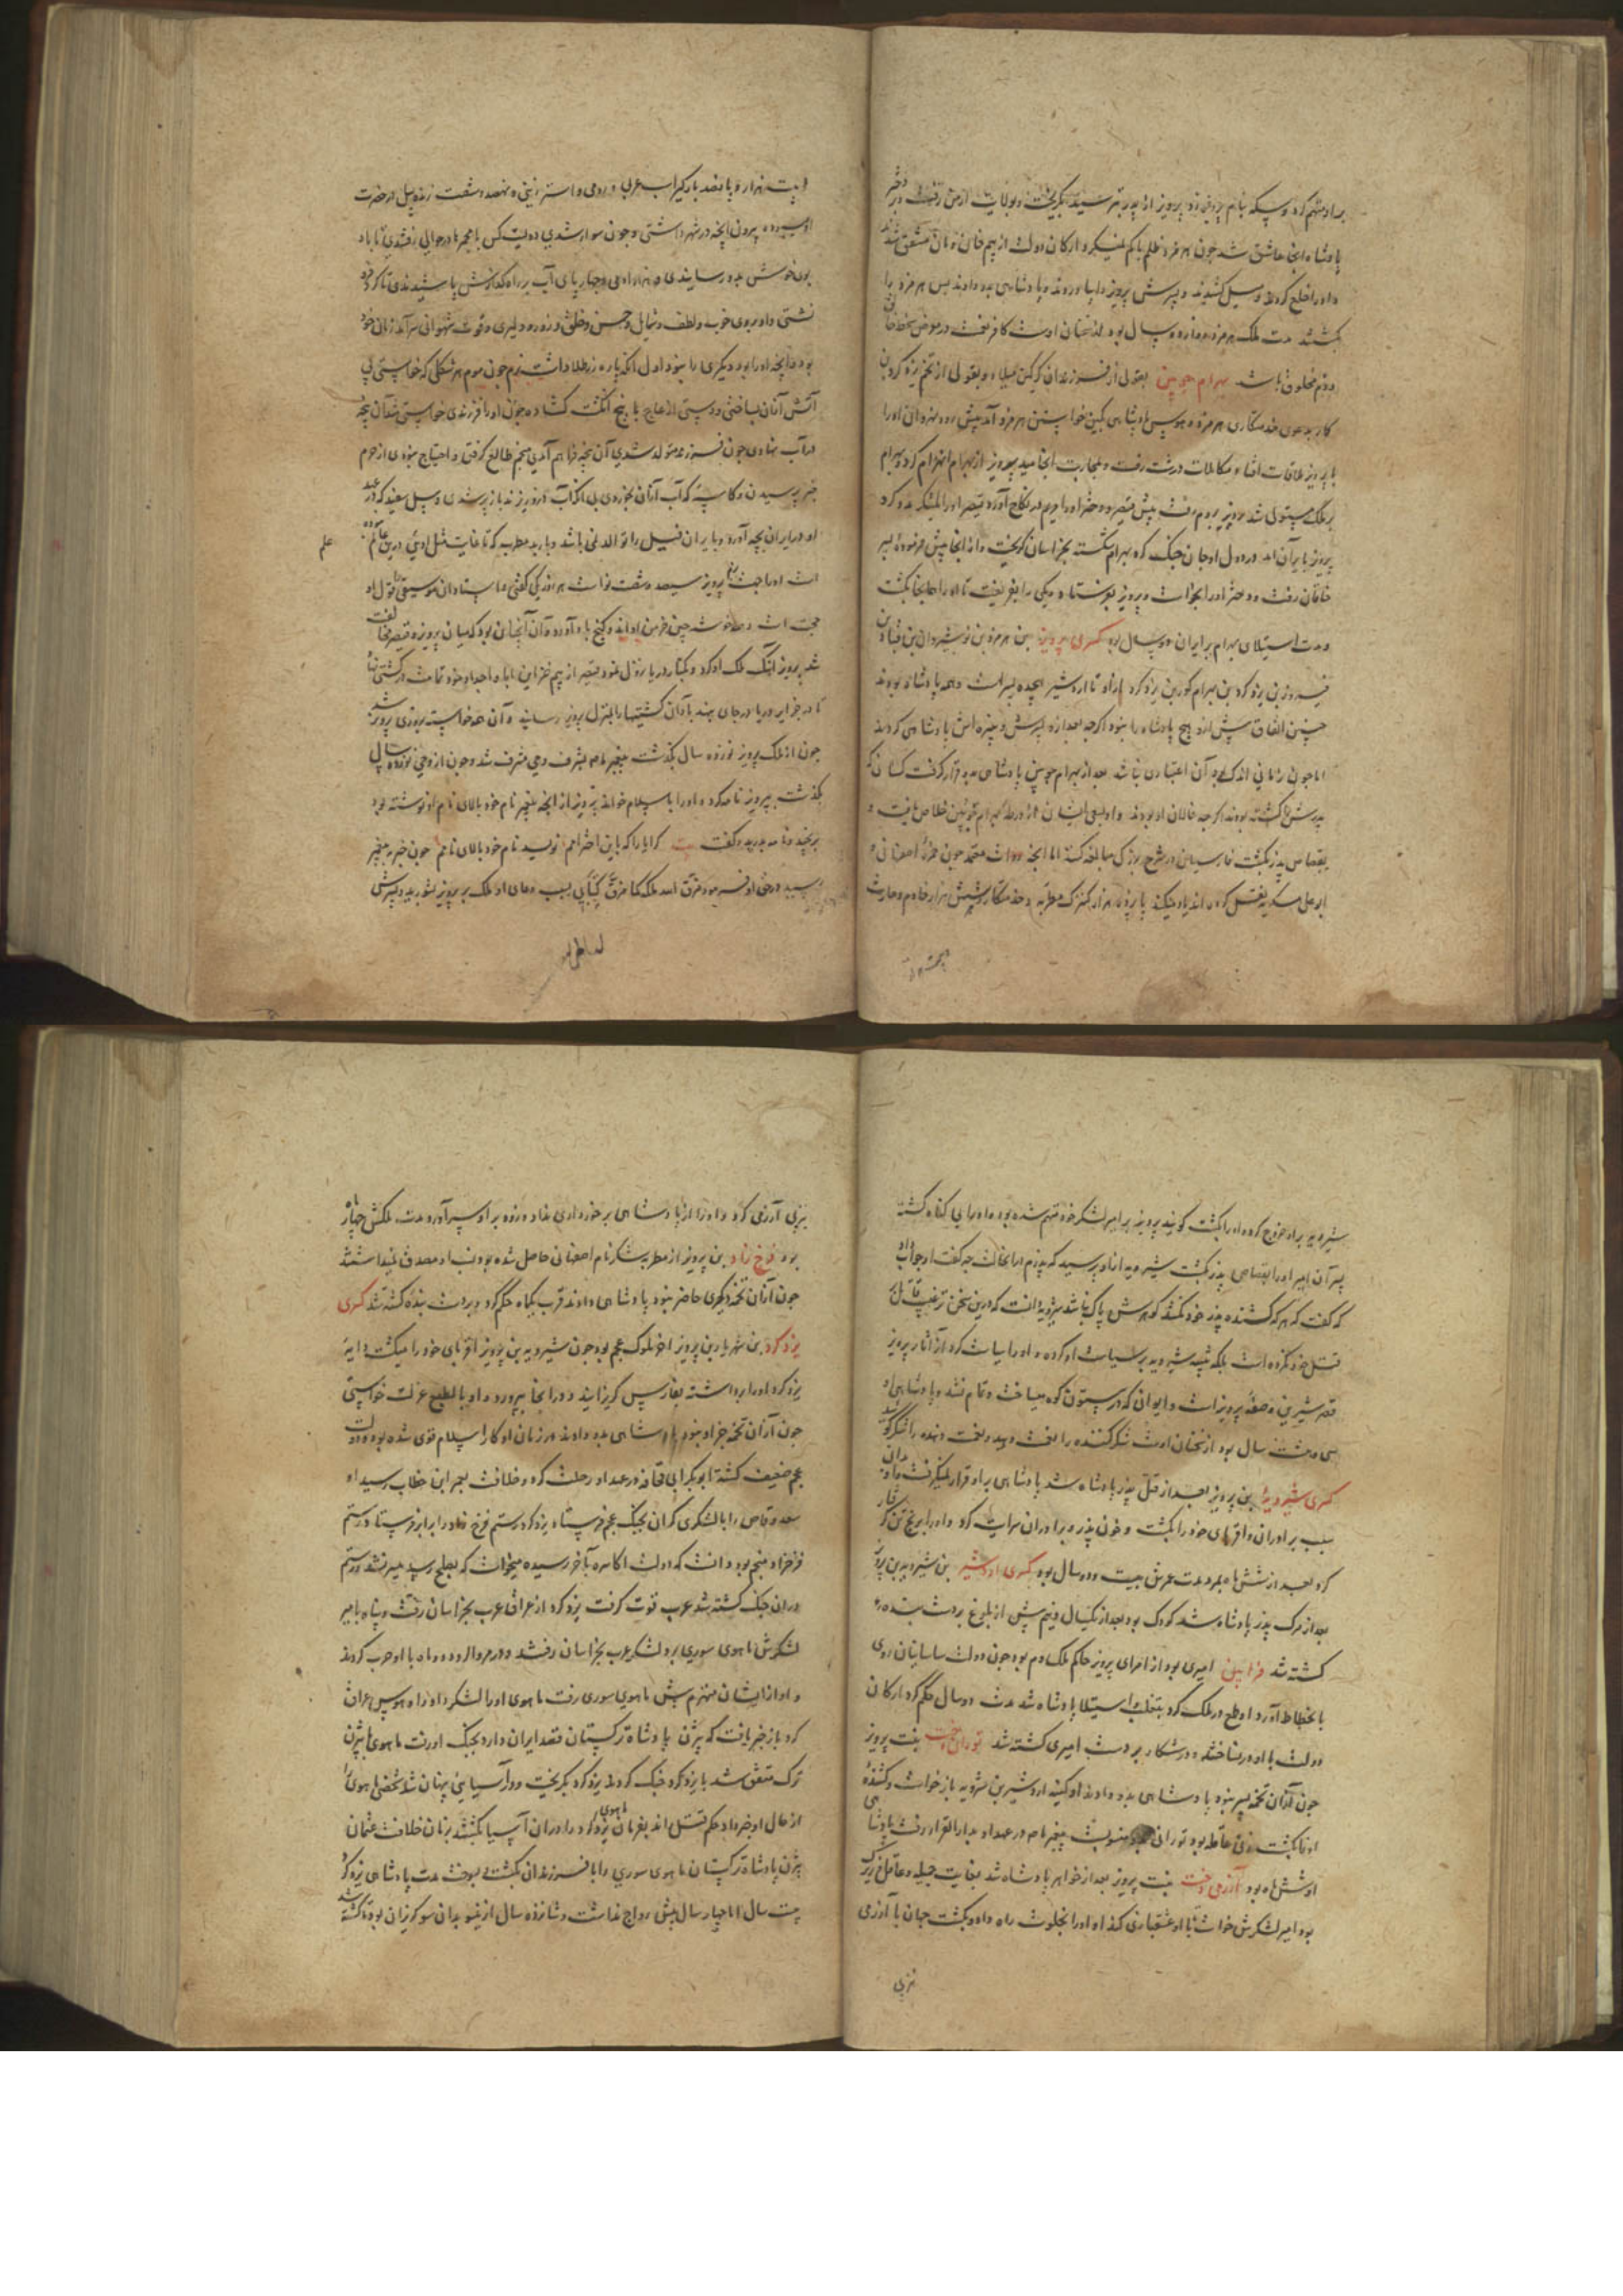 براو متهم کرد و سکه بنام پرویز زد پرویز از پدر بترسید بگریخت و بولایت ارمن رفت و بر دختر
پادشاه انجا عاشق شد چون هرمز ظلم باکم میکرد ارکان دولت از بیم خان و مان متفق شدند
و او را خلع کردند و میل کشیدند و پسرش پرویز را بیاوردند و پادشاهی بدو دادند پس هرمز را
بکشتند مدت ملک هرمز دوازده سال بود از سخنان اوست کافر نعمت در معرض سخط خالق
و ذم مخلوق باشد بهرام چوبین بقولی از فرزندان گرگین میلاد و بقولی از تخم یزدکرد بن
کار بدعوی خدمتکاری هرمز و هوس پادشاهی بکین خواستن هرمز آمد پیش رود نهروان او را
با پرویز ملاقات افتاد مکالمات درشت رفت و بمحاربت انجامید پرویز از بهرام انهزام کرد و بهرام
بر ملک مستولی شد پرویز بروم رفت پیش قیصر و دختر او را مریم در نکاح آورد قیصر او را بلشکر مدد کرد
پرویز بایران آمد و در دول اوجان جنک کرد بهرام شکسته بخراسان گریخت و از انجا پیش فرموده پسر
خاقان رفت و دختر او را بخواست و پرویز بفرستاد و یکی را بفریفت تا او را همانجا بکشت
و مدت استیلای بهرام بر ایران دو سال بود کسری پرویز بن هرمز بن نوشیروان بن قباد بن
فیروز بن یزدکرد بن بهرام کور بن یزدکرد از او تا اردشیر همه پسر است و همه پادشاه بودند
چنین اتفاق پیش ازو هیچ پادشاه را نبود اکرچه بعد ازو پسرش و نبیره اش پادشاهی کردند
اما چون زمانی اندک بود آن اعتباری نباشد بعد از بهرام چوبین پادشاهی بدو قرار گرفت کسانی که
پدرش را کشته بودند اکرچه خالان او بودند و او بسعی ایشان از ورطه بهرام چوبین خلاص یافت و
بقصاص پدر بکشت فارسیان در شرح بزرکی مبالغه کنند اما انچه روات معتمد چون حمزه اصفهانی و
ابو علی مسکویه نقل کرده اند یاد میکند با پرویز هزار کنیزک مطربه و خدمتکار و شش هزار خادم و حارث
و بیست هزار و پانصد بارگیر اسب عربی و رومی و استر بختی و نهصد و شصت زنده پیل در حضرت
او بسیوده بیرون انچه در شهر داشتی و چون سوار شدی دویست کس با مجمرها در حوالی رفتندی تا باد
بوی خوش بدو رسانیدی و هزار ادمی و چهارپای آب بر راه گذارش پاشیدندی تا کرد
نشستی و او بروی خوب و لطف و شمایل و حسن و خلق و زور و دلیری و قوت شهوانی سرآمد زمان خود
بود و انچه او را بود دیکری را نبود اول انکه پاره زر طلا داشت نرم چون موم هر شکلی که خواستی بی
آتش از آن بساختی و دستی از عاج با پنج انکشت کشاده چون او را فرزندی خواستی شد آن پنجه
در آب نهادی چون فرزند متولد شدی آن پنجه فراهم آمدی منجم طالع گرفتی و احتیاج نبودی از حرم
خبر پرسیدن و کاسه که آب از آن بخوردی بی انکه آب درو ریزند باز پر شدی و پیل سفید که در عهد
او در ایران بچه آورد و بایران فیل را توالد نمی باشد و باربد مطرب که تا غایت مثل اوئی درین علم نبوده
علم
است او را جهت بزم پرویز سیصد و شصت نوا است هر روز یکی گفتی و استادان موسیقی را قول او
حجت است و همه خوشه چین خرمن او اند و گنج باد آورد و آن آنچنان بود که میان پرویز و قیصر مخالفت
شد پرویز آهنگ ملک او کرد و بکنار دریا نزول نمود قیصر از بیم خزاین ابا و اجداد خود تمامت در کشتی نهاد
تا در جزایر دریا در جای نهند باد آن کشتیها را بمنزل پرویز رسانید و آن همه خواسته روزی پرویز شد
چون از ملک پرویز نوزده سال بگذشت پیغمبر ما بشرف وحی مشرف شد و چون از وحی نوزده سال
بگذشت بپرویز نامه کرد و او را باسلام خواند پرویز از انچه پیغمبر نام خود بالای نام او نوشته بود
برنجید و نامه بدرید و گفت بیت کرا یارا که باین احترامم نویسد نام خود بالای نامم چون خبر به پیغمبر
رسید در حق او فرمود مزق الله ملکه کما مزق کتابی بسبب دعای او ملک بر پرویز بشورید و پسرش
شیرویه براو خروج کرد و او را بکشت گویند پرویز بر امیر لشکر خود متهم شده بود و او را بی گناه کشته
پسر آن امیر او را بقصاص پدر بکشت شیرویه از او پرسید که پدرم در آن حالت چه گفت او جواب داد
که گفت که هر که کشنده پدر خود نکشد گوهرش پاک نباشد شیرویه دانست که درین سخن ترغیب قاتل
قتل خود نکرده است بلکه تنبیه شیرویه بر سیاست او کرده و او را سیاست کرد از آثار پرویز
قصر شیرین و صفه پرویز است و ایوان که در بیستون کوه میساخت و تمام نشد و پادشاهی او
سی و هشت سال بود از سخنان اوست شکر کننده را نعمت دهید و نعمت دهنده را شکر گوئید
کسری شیرویه بن پرویز بعد از قتل پدر پادشاه شد پادشاهی براو قرار نمیگرفت بدان
سبب برادران و اقربای خود را بکشت و خون پدر و برادران سرایت کرد و او را برنج تن گرفتار
کرد بعد از شش ماه بمرد مدت عمرش بیست و دو سال بود کسری اردشیر بن شیرویه بن پرویز
بعد از مرگ پدر پادشاه شد کودک بود بعد از یکسال و نیم پیش از بلوغ بر دست بنده
کشته شد فرایین امیری بود از امرای پرویز حاکم ملک روم بود چون دولت ساسانیان روی
بانحطاط آورد او طمع در ملک کرد بتغلب استیلا پادشاه شد مدت دو سال حکم کرد ارکان
دولت با او در نساختند و در شکار بر دست امیری کشته شد توران دخت بنت پرویز
چون از آن تخمه پسر نبود پادشاهی بدو دادند او کینه اردشیر بن شیرویه باز خواست و کشنده
او را بکشت زنی عاقله بود توران منسوبست پیغمبر ما در عهد او بدار القرار رفت پادشاهی
او شش ماه بود آزرمی دخت بنت پرویز بعد از خواهر پادشاه شد بغایت جمیله و عاقل و زیرک
بود امیر لشکرش خواست تا او عشقبازی کند او او را بخلوت راه داد و بکشت جهان با آزرمی
نزیی
بزبی آزرمی کرد و او را از پادشاهی برخورداری نداد و زود براو سرآورد مدت ملکش چهار ماه
بود فرخ زاد بن پرویز از مطربه شکر نام اصفهان حاصل شده بود و نسب او مصدق نمیداشتند
چون از آن تخمه دیکری حاضر نبود پادشاهی دادند قرب یکماه حکم کرد و بردست بنده کشته شد کسری
یزدکرد بن شهریار بن پرویز آخر ملوک عجم بود چون شیرویه بن پرویز اقربای خود را میکشت دایه
یزدکرد او را برداشته بفارس گریزانید و در انجا بپرورد و او بالطبع عزلت خواستی
چون از آن تخمه جز او نبود پادشاهی بدو دادند در زمان او کار اسلام قوی شده بود و دولت
عجم ضعیف کشته ابو بکر ابی قحافه در عهد او رحلت کرد و خلافت بعمر ابن خطاب رسید او
سعد وقاص را با لشکری گران بجنک عجم فرستاد یزدکرد رستم فرخ زاد را برابر فرستاد رستم
فرخزاد منجم بود دانست که دولت اکاسره بآخر رسیده میخواست که بصلح رسید میسر نشد و رستم
در ان جنک کشته شد عرب قوت گرفت یزدکرد از عراق عرب بخراسان رفت و پناه بامیر
لشکرش ماهوی سوری برد لشکر عرب بخراسان رفتند و در مرو الرود دو ماه با او حرب کردند
و او از ایشان منهزم پیش ماهوی سوری رفت ماهوی او را لشکر داد و او هوس عراق
کرد باز خبر یافت که بیژن پادشاه ترکستان قصد ایران دارد بجنک او رفت ماهوی با بیژن
ترک متفق شد با یزدکرد جنک کردند یزدکرد بگریخت و در آسیابی پنهان شد شخصی ماهوی را
از حال او خبر داد حکم قتل اند بفرمان ماهوی یزدکرد را در ان آسیا بکشتند بزمان خلافت عثمان
بیژن پادشاه ترکستان ماهوی سوری را با فرزندان بکشت و بسوخت مدت پادشاهی یزدکرد
بیست سال اما چهار سال بیش رواج نداشت و شانزده سال ازینسو بدان سو گریزان بود تا کشته شد